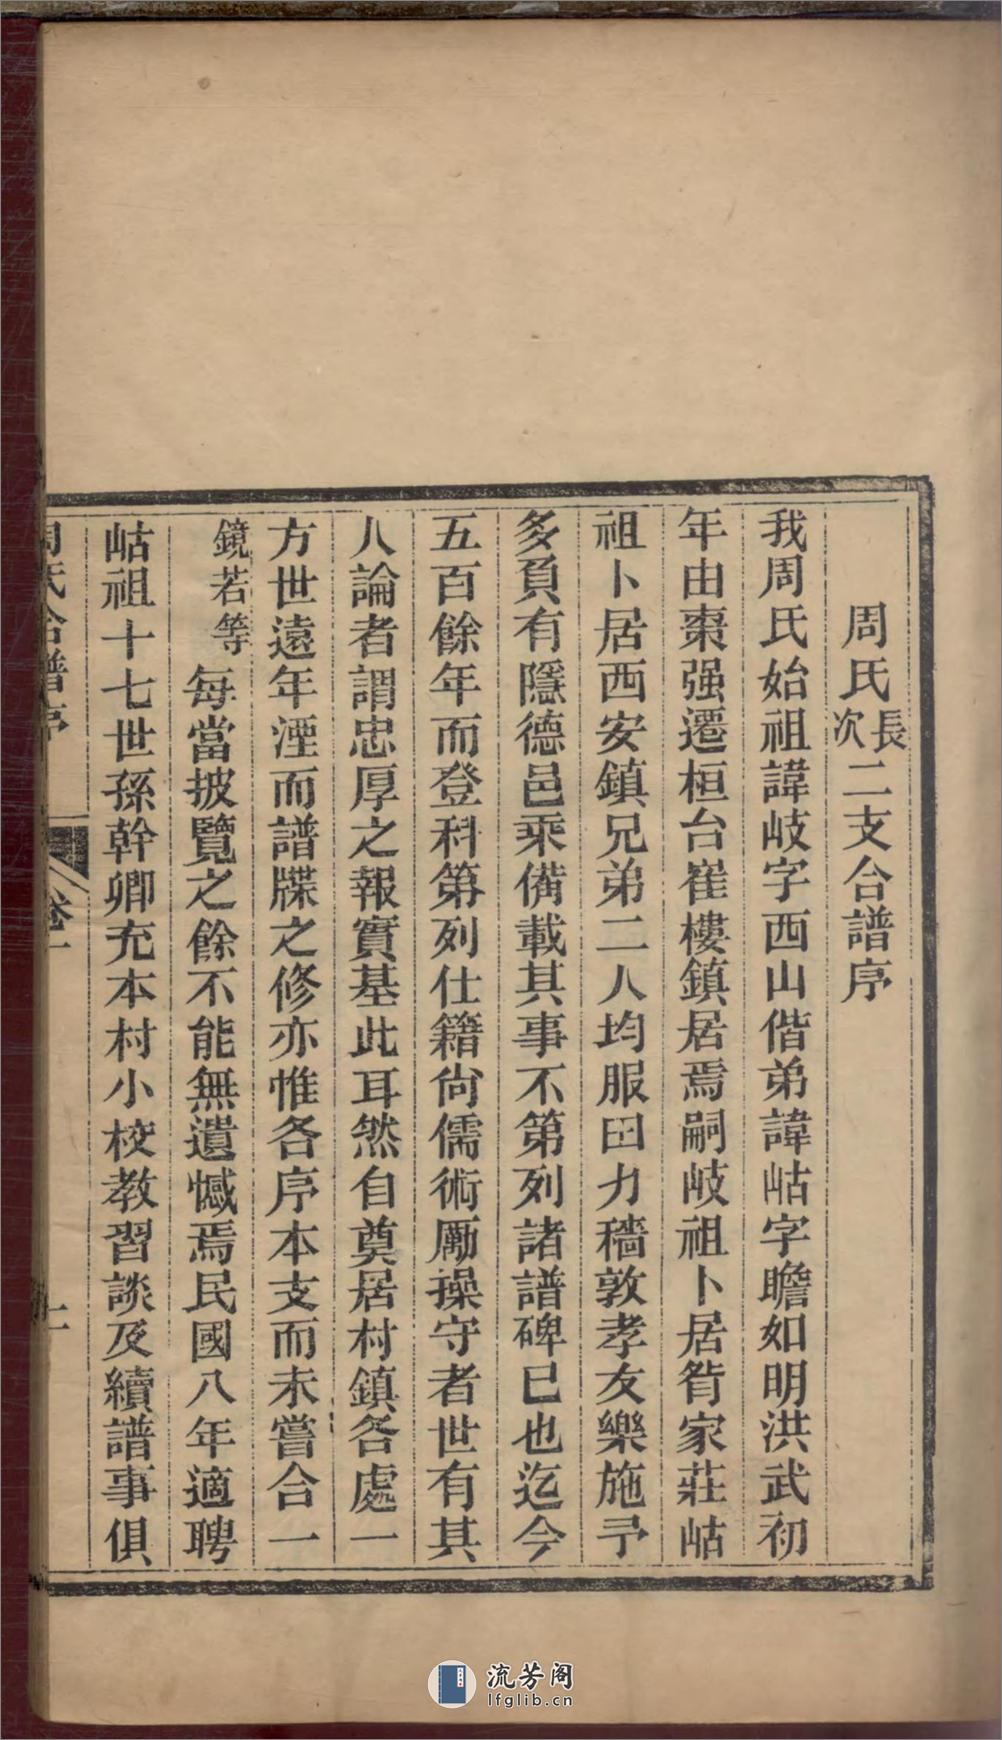 周氏長次二支合譜序
我周氏始祖諱岐字西山偕弟諱岵字瞻如明洪武初
年由棗强遷桓台崔樓鎮居焉嗣岐祖卜居昝家莊岵
祖卜居西安鎮兄弟二人均服田力穡敦孝友樂施予
多負有隱德邑乘備載其事不第列諸譜碑已也迄今
五百餘年而登科第列仕籍尙儒術厲操守者世有其
人論者謂忠厚之報實基此耳然自奠居村鎮各處一
方世遠年湮而譜牒之修亦惟各序本支而未嘗合一
鏡若等每當披覽之餘不能無遺憾焉民國八年適聘
岵祖十七世孫幹卿充本村小校教習談及續譜事俱
周氏合譜序 卷一 上
流芳阁
lfglib.cn